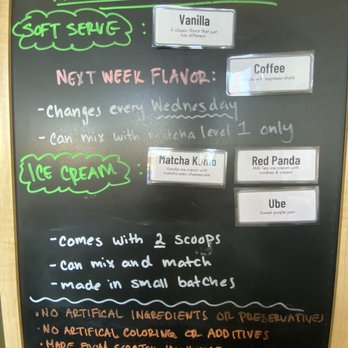 SOFT SERVE
Vanilla
A classic flavor that just
hits different
NEXT WEEK FLAVOR:
Coffee
made with espresso shots
- changes every Wednesday
- can mix with matcha level 1 only
ICE CREAM
Matcha Komo
Vanilla ice cream with
matcha oreo cheesecake
Red Panda
Milk tea ice cream with
cookies & cream
Ube
Sweet purple yam
- comes with 2 scoops
- can mix and match
- made in small batches
• NO ARTIFICAL INGREDIENTS OR PRESERVATIVES
• NO ARTIFICAL COLORING OR ADDITIVES
• MADE FROM SCRATCH